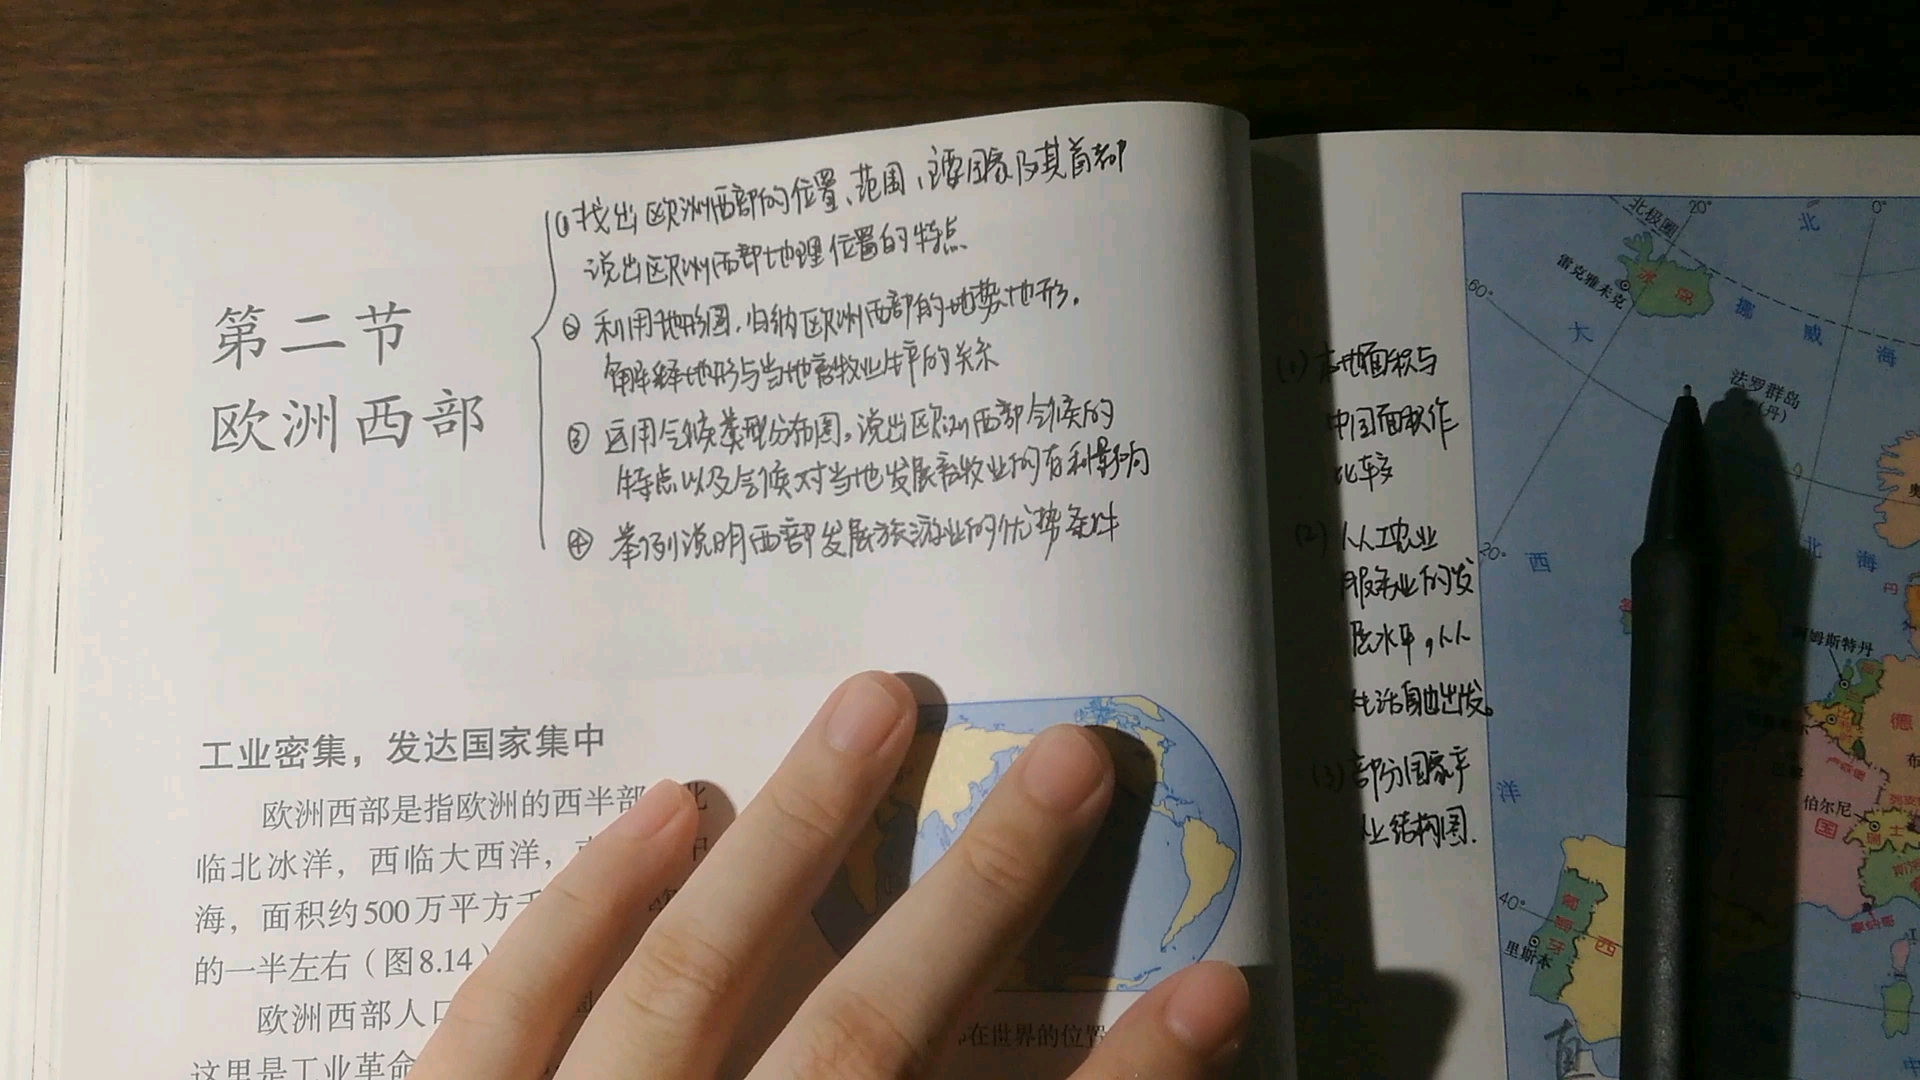 ①找出欧洲西部的位置、范围,主要国家及其首都
说出欧洲西部地理位置的特点
② 利用地形图,归纳欧洲西部的地势地形,
解释地形与当地畜牧业生产的关系
③ 运用气候类型分布图,说出欧洲西部气候的
特点以及气候对当地发展畜牧业的有利影响
④ 举例说明西部发展旅游业的优势条件
第二节
欧洲西部
工业密集,发达国家集中
欧洲西部是指欧洲的西半部
北
临北冰洋,西临大西洋,
海,面积约500万平方千
的一半左右(图8.14)
欧洲西部人口
这里是工业革命
在世界的位置
(1) 本地面积与
中国面积作
比较
(2) 从工农业
服务业的发
展水平,从
生活自出发。
(3) 部分国家产
业结构图.
北极圈
20°
0°
北
雷克雅未克
冰岛
60°
大
挪
威
海
法罗群岛
(丹)
0
奥
20°
西
北
海
阿姆斯特丹
德
洋
伯尔尼
国
士
布
40°
葡萄牙
西
里斯本
摩纳哥
0
直
中